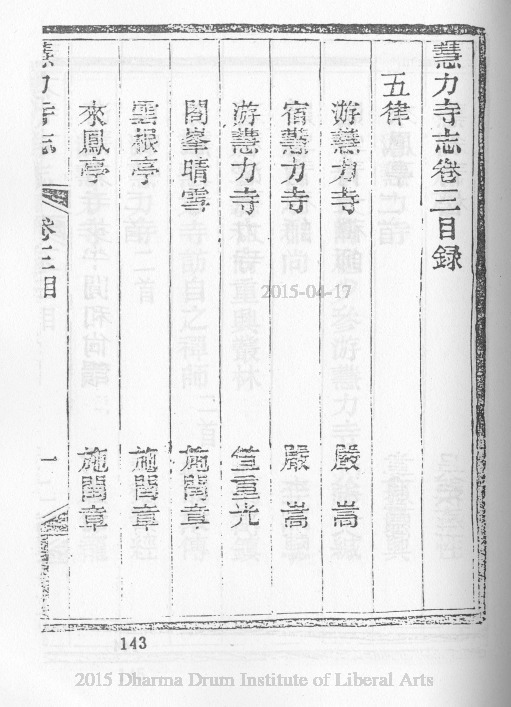 慧力寺志卷三目録
五律
游慧力寺 嚴嵩
宿慧力寺 嚴嵩
游慧力寺 笪重光
閤峯晴雪 施閏章
雲根亭 施閏章
來鳳亭 施閏章
慧力寺志 卷三目 一
2015-04-17
143
2015 Dharma Drum Institute of Liberal Arts